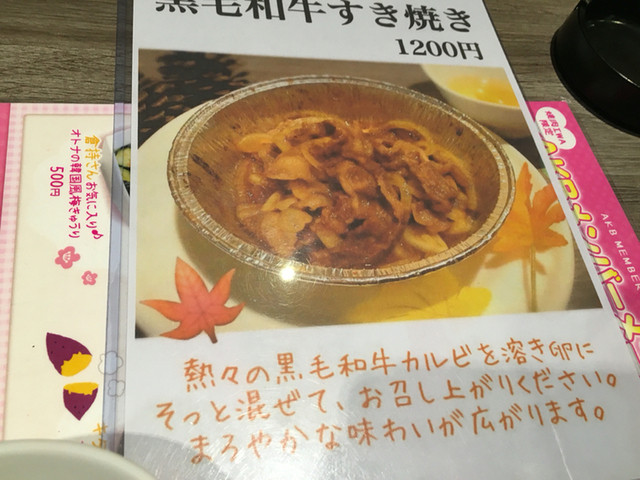 黒毛和牛すき焼き
1200円
熱々の黒毛和牛カルビを溶き卵に
そっと混ぜて、お召し上がりください。
まろやかな味わいが広がります。
倉持さんお気に入り
オトナの韓国風梅きゅうり
500円
AKB MEMBER